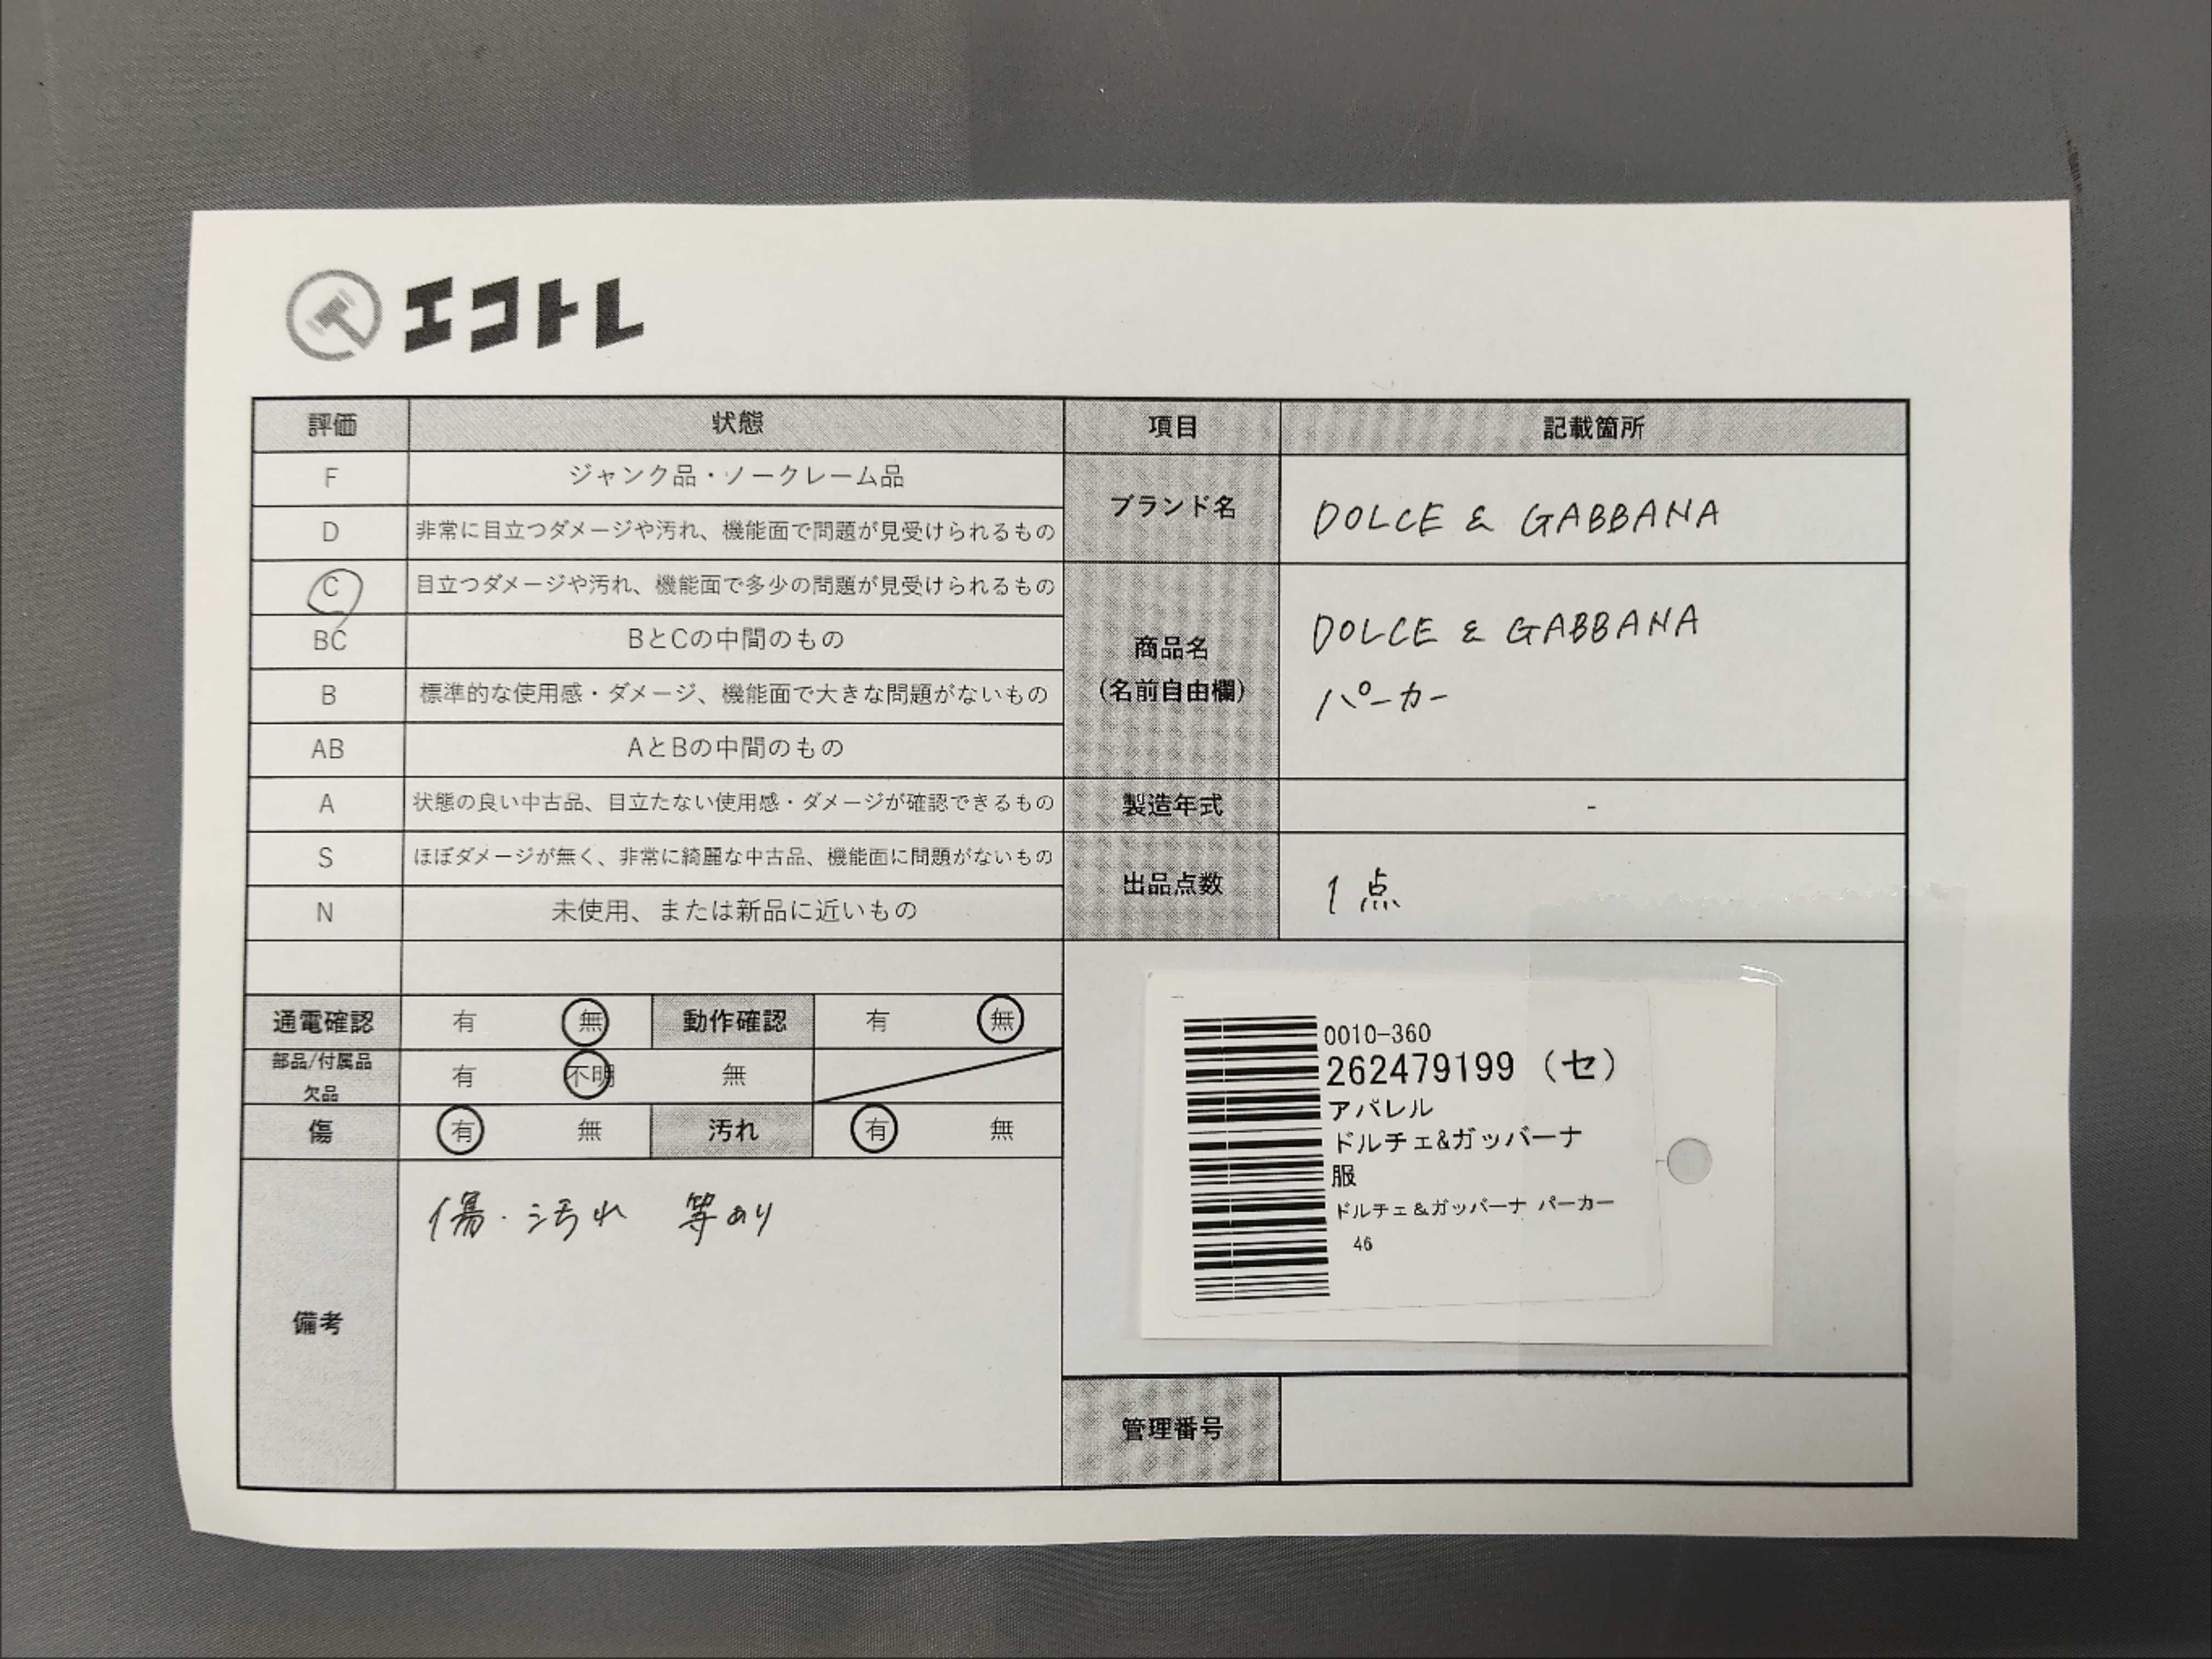 エコトレ
評価 状態 項目 記載箇所
F ジャンク品・ノークレーム品
D 非常に目立つダメージや汚れ、機能面で問題が見受けられるもの
ブランド名 DOLCE & GABBANA
C 目立つダメージや汚れ、機能面で多少の問題が見受けられるもの
BC BとCの中間のもの
B 標準的な使用感・ダメージ、機能面で大きな問題がないもの
AB AとBの中間のもの
商品名
(名前自由欄)
DOLCE & GABBANA
パーカー
A 状態の良い中古品、目立たない使用感・ダメージが確認できるもの
製造年式 -
S ほぼダメージが無く、非常に綺麗な中古品、機能面に問題がないもの
N 未使用、または新品に近いもの
出品点数 1点
通電確認 有 無 動作確認 有 無
部品/付属品
欠品
有 不明 無
傷 有 無 汚れ 有 無
備考
傷・汚れ 等あり
0010-360
262479199 (セ)
アパレル
ドルチェ&ガッバーナ
服
ドルチェ&ガッバーナ パーカー
46
管理番号